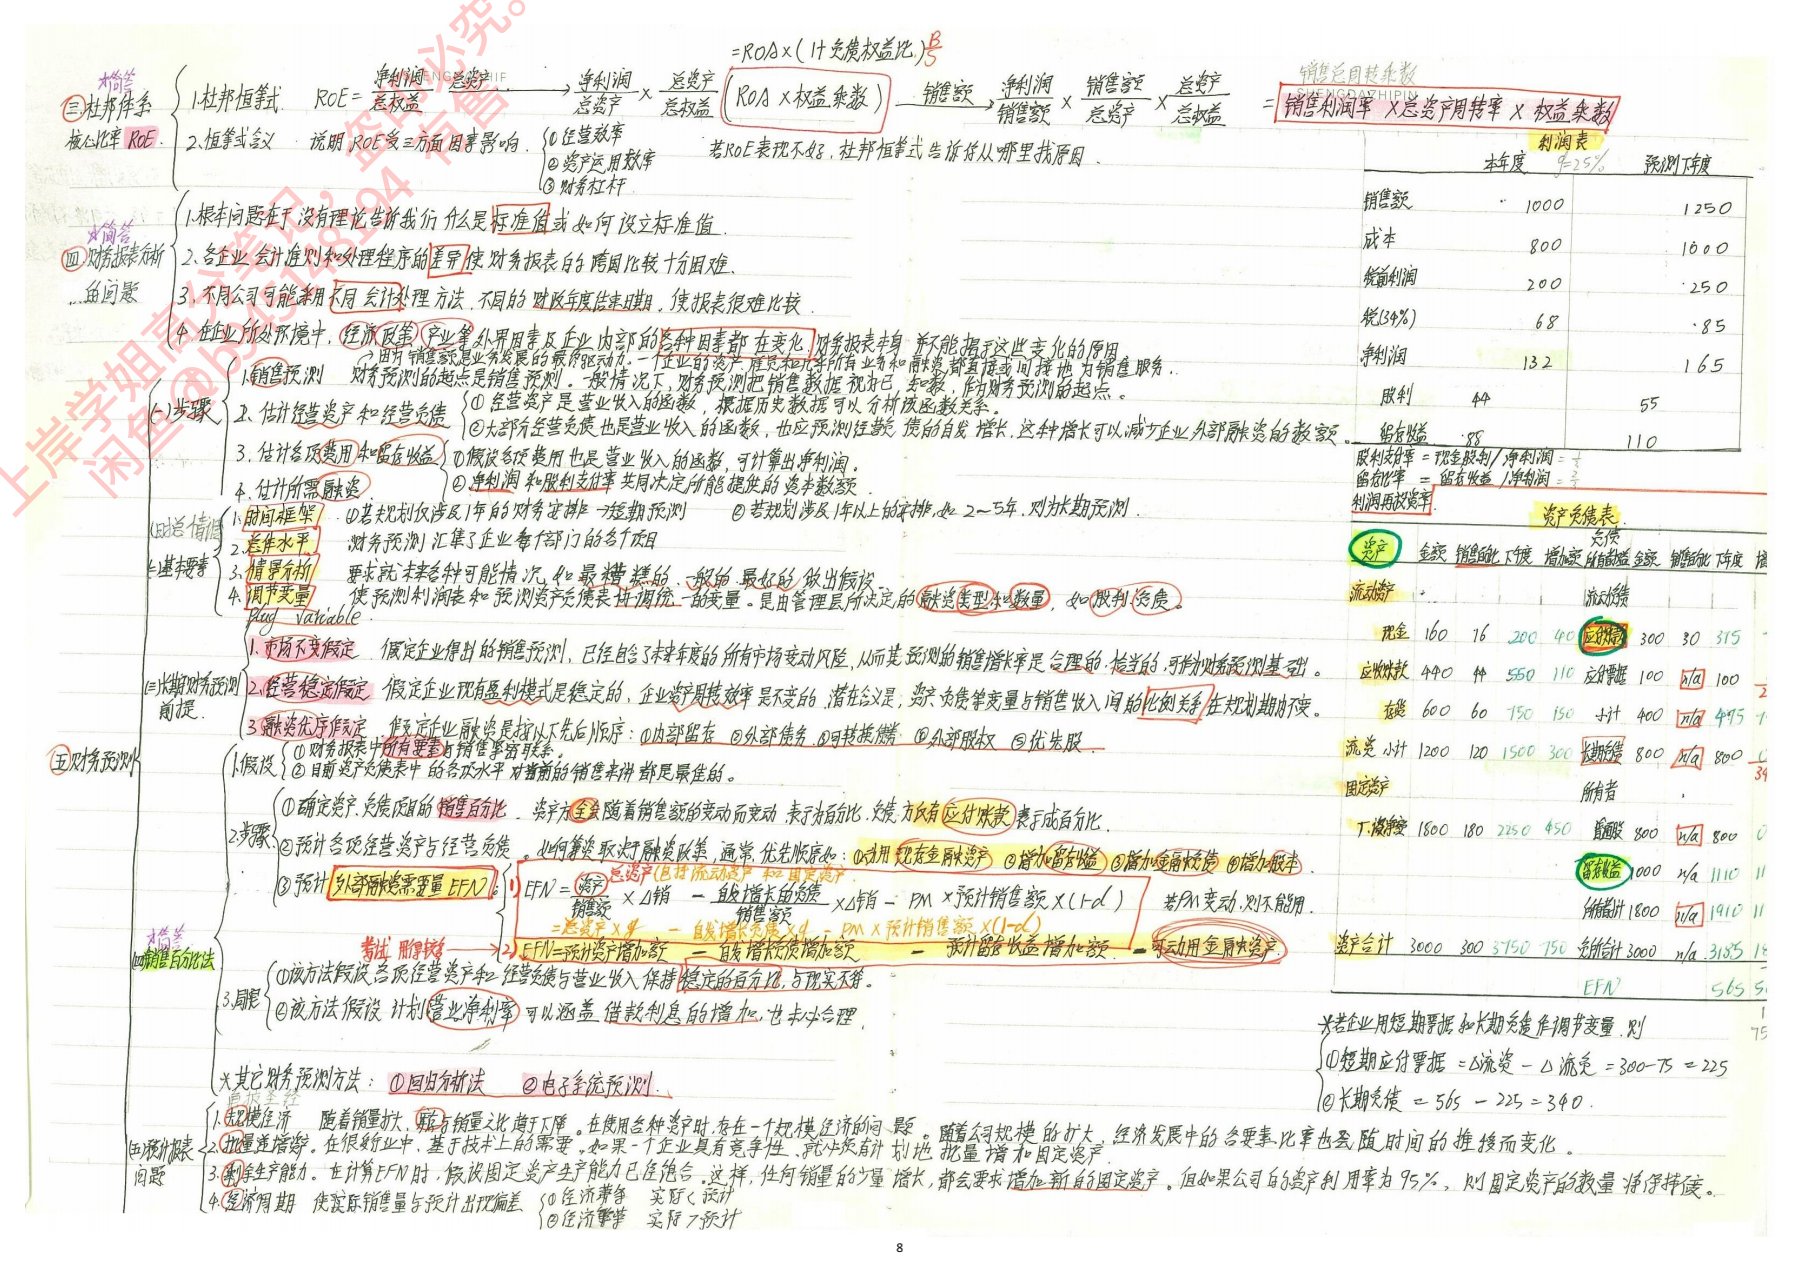 =ROA×(1+负债权益比) B/S
*简答
三.杜邦体系
核心比率 ROE
1.杜邦恒等式 ROE=净利润/总权益 总资产 → 净利润/总资产 × 总资产/总权益 (ROA×权益乘数) 销售额 → 净利润/销售额 × 销售额/总资产 × 总资产/总权益 = 销售利润率×总资产周转率×权益乘数
2.恒等式含义 说明ROE受三方面因素影响 ①经营效率
②资产运用效率
③财务杠杆
若ROE表现不好,杜邦恒等式告诉你从哪里找原因.
*简答
四.财务报表分析
的问题
1.根本问题在于没有理论告诉我们什么是标准值或如何设立标准值
2.各企业会计准则和处理程序的差异使财务报表的跨国比较十分困难.
3.不同公司可能采用不同会计处理方法.不同的财政年度结束日期,使报表很难比较
4.在企业所处环境中,经济政策、产业等外界因素及企业内部的各种因素都在变化,财务报表本身并不能揭示这些变化的原因
五.财务预测
(一)步骤
由于销售额是业务发展的最终驱动力.一个企业的资产.雇员和几乎所有业务和融资,都直接或间接地为销售服务.
1.销售预测 财务预测的起点是销售预测。一般情况下,财务预测把销售数据视为已知数,作为财务预测的起点。
2.估计经营资产和经营负债 ①经营资产是营业收入的函数,根据历史数据可以分析该函数关系。
②大部分经营负债也是营业收入的函数,也应预测经营负债的自发增长,这种增长可以减少企业外部融资的数额。
3.估计各项费用和留存收益 ①假设各项费用也是营业收入的函数,可计算出净利润。
②净利润和股利支付率共同决定所能提供的资本数额.
4.估计所需融资
(二)基本要素
1.时间框架 ①若规划仅涉及1年的财务安排→短期预测 ②若规划涉及1年以上的安排,如2~5年,则为长期预测.
2.总体水平 财务预测汇集了企业每个部门的各个项目
3.情景分析 要求就未来各种可能情况,如最糟糕的、一般的、最好的做出假设
4.调节变量 使预测利润表和预测资产负债表协调统一的变量。是由管理层所决定的融资类型和数量,如股利,负债。
plug variable
(三)长期财务预测
前提.
1.市场不变假定 假定企业得出的销售预测,已经包含了未来年度的所有市场变动风险,从而其预测的销售增长率是合理的.恰当的,可作为财务预测基础。
2.经营稳定假定 假定企业现有盈利模式是稳定的,企业资产周转效率是不变的.潜在含义是:资产.负债等变量与销售收入间的比例关系在规划期内不变。
3.融资优序假定 假定企业融资是按以下先后顺序:①内部留存 ②外部债务 ③可转换债 ④外部股权 ⑤优先股
*简答
(四)销售百分比法
1.假设 ①财务报表中所有要素与销售紧密联系。
②目前资产负债表中的各项水平对当前的销售来讲都是最佳的。
2.步骤 ①确定资产.负债项目的销售百分比. 资产方全会随着销售额的变动而变动 表示为百分比.负债方仅有应付账款表示成百分比.
②预计各项经营资产与经营负债。如何筹资取决于融资政策,通常,优先顺序如:①动用现存金融资产 ②增加留存收益 ③增加金融负债 ④增加股本.
③预计外部融资需要量EFN:
总资产(包括流动资产和固定资产
1) EFN=资产/销售额×△销 - 自发增长的负债/销售额×△销 - PM×预计销售额×(1-d) 若PM变动,则不能用.
=总资产×g - 自发增长负债×g - PM×预计销售额×(1-d)
2) EFN=预计资产增加额 - 自发增长负债增加额 - 预计留存收益增加额 - 可动用金融资产.
3.局限 ①该方法假设各项经营资产和经营负债与营业收入保持稳定的百分比,与现实不符。
②该方法假设计划营业净利率可以涵盖借款利息的增加,也未必合理.
*其它财务预测方法: ①回归分析法 ②电子系统预测.
(五)预计报表
问题
1.规模经济 随着销量扩大,与销量之比趋于下降。在使用各种资产时,存在一个规模经济的问题。随着公司规模的扩大,经济发展中的各要素比率也会随时间的推移而变化。
2.批量递增等.在很多行业中,基于技术上的需要,如果一个企业具有竞争性,就必须有计划地批量增加固定资产.
3.剩余生产能力.在计算EFN时,假设固定资产生产能力已经饱合。这样,任何销量的少量增长,都会要求增加新的固定资产。但如果公司的资产利用率为95%,则固定资产的数量将保持不变。
4.经济周期 使实际销售量与预计出现偏差 ①经济萧条 实际<预计
②经济繁荣 实际>预计
利润表
本年度 g=25% 预测下年度
销售额 1000 1250
成本 800 1000
税前利润 200 250
税(34%) 68 85
净利润 132 165
股利 44 55
留存收益 88 110
股利支付率=现金股利/净利润=1/3
留存比率=留存收益/净利润=2/3
利润再投资率
资产负债表
资产 金额 销售百分比 下年度 增加额 负债所有者权益 金额 销售百分比 下年度
流动资产 流动负债
现金 160 16 200 40 应付账款 300 30 375
应收账款 440 44 550 110 应付票据 100 n/a 100
存货 600 60 750 150 小计 400 n/a 475
流资小计 1200 120 1500 300 长期负债 800 n/a 800
固定资产 所有者
厂.设净额 1800 180 2250 450 普通股 800 n/a 800
留存收益 1000 n/a 1110
所有者计 1800 n/a 1910
资产合计 3000 300 3750 750 负所合计 3000 n/a 3185
EFN 565
*若企业用短期票据和长期负债作调节变量,则
①短期应付票据=△流资-△流负=300-75=225
②长期负债=565-225=340.
上岸学姐高分笔记,盗印必究。
闲鱼@by45148194 有售
8